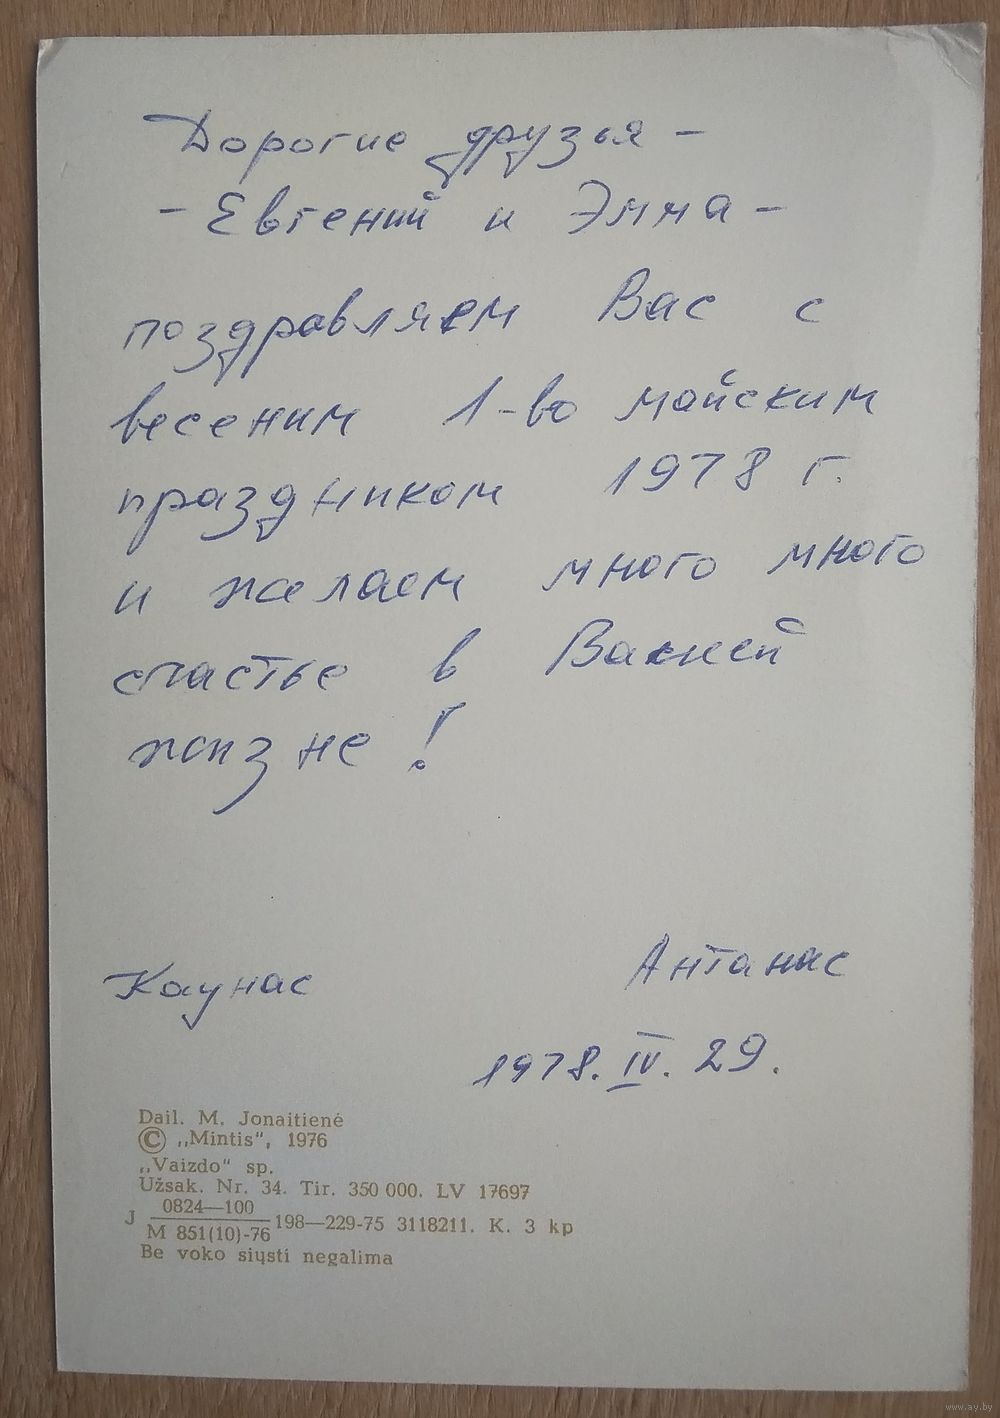 Дорогие друзья –
– Евгений и Эмма –
поздравляем Вас с
весеним 1-во майским
праздником 1978 г.
и желаем много много
счастье в Вашей
жизне!
Каунас Антанас
1978. IV. 29.
Dail. M. Jonaitienė
© „Mintis“, 1976
„Vaizdo“ sp.
Užsak. Nr. 34. Tir. 350 000. LV 17697
J 0824—100
M 851(10)-76 198—229-75 3118211. K. 3 kp
Be voko siųsti negalima
www.ay.by